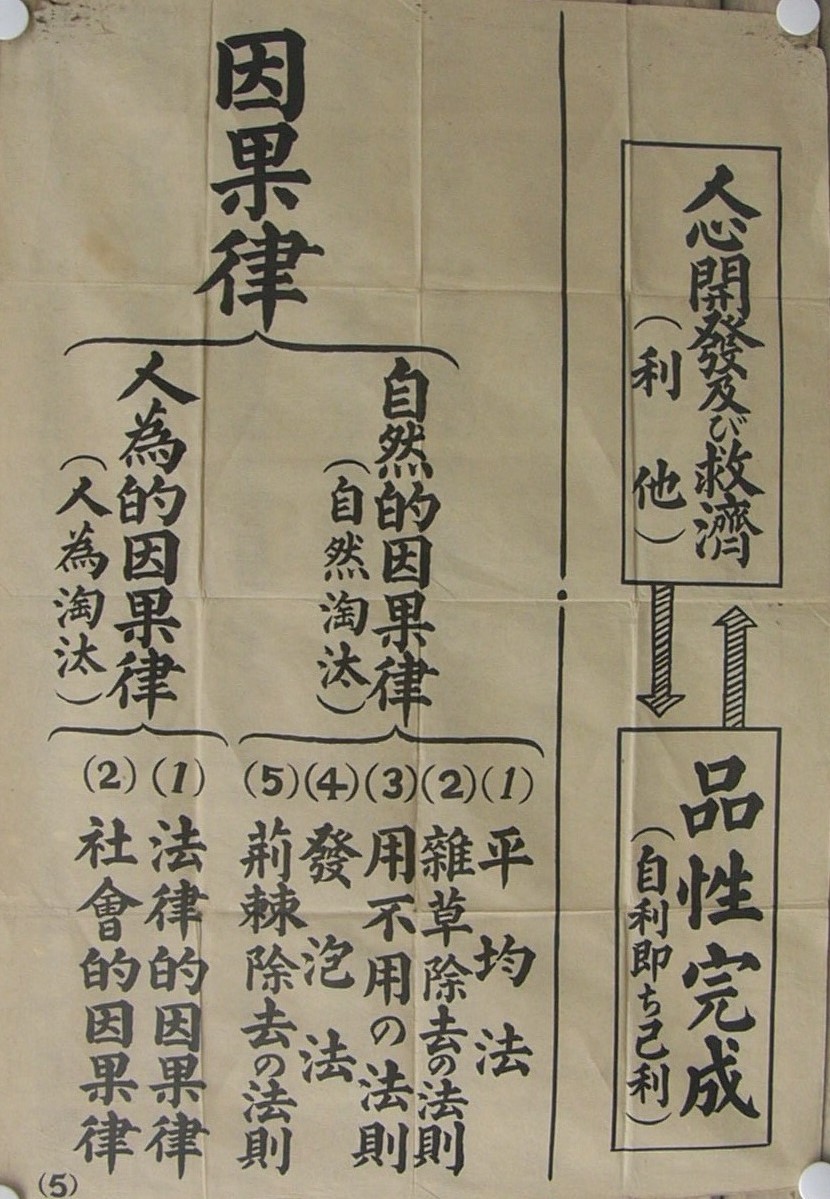 人心開發及び救濟
(利他)
品性完成
(自利即ち己利)
因果律
自然的因果律
(自然淘汰)
(1)平均法
(2)雜草除去の法則
(3)用不用の法則
(4)發泡法
(5)荊棘除去の法則
人為的因果律
(人為淘汰)
(1)法律的因果律
(2)社會的因果律
(5)